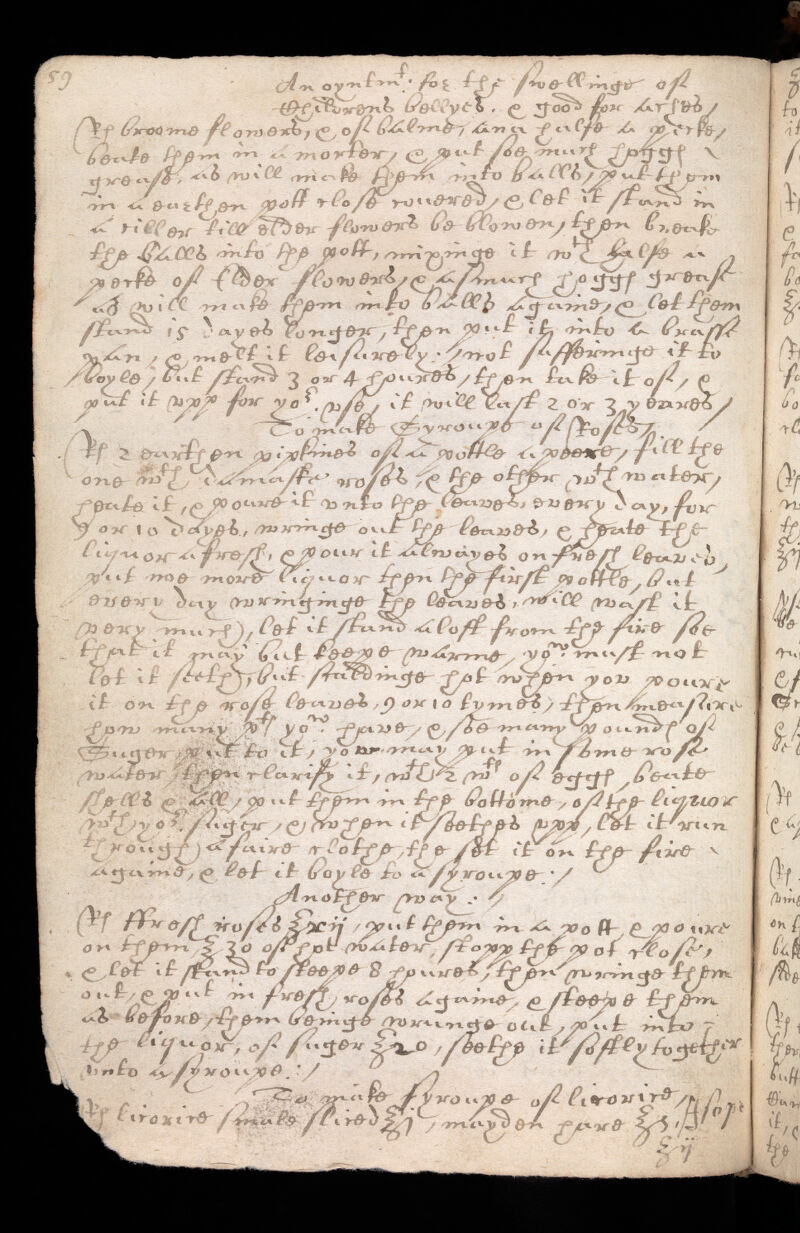 59
An oyntmt: for the swellinge of
Childrens bellyes, & good for aches,
Rx broome flowers, & of balme, ana halfe a pecke,
beate them in a morter, & put soe much hoggs
grease, as will make them into balls, put them
in a earthen pott close covered, & let it stand in
a celler till elder flowers be blowen, then breake
the balls into the pott, mixinge it wth halfe a
pecke of Elder flowers, & as much hoggs grease
as will make them into balls againe, & let them
stand 15 dayes longer, then put it into a brasse
pan, & melt it leisurely: not sufferinge it to
boyle, but stand 3 or 4 houres, then take it of, &
put it upp for yor: use, it will last 2 or 3 yeares,
To make Syroupe of Roses,
Rx 2 earthen pipkines of a pottle a peere, fill the
one wth damaske roses, & the other wth water,
heate it, & poure it unto the leaves, every day, for
9 or 10 dayes, wringe out the leaves, & heate the
liquor afresh, & pour it alwayes on fresh leaves,
put noe more liquor then the first pottle, but
every day wringinge the leaves, will wast it
very much), let it stand aloft from the fire soe
that it may but keepe warme, you must not
let it seeth, but scaldinge hot when you poure
it on the rose leaves, 9 or 10 tymes, then measure
how many pts you have, & soe many pounds of
Suger put to it, you may put in some rose
water, then clarify it, wth 2 whs of eggs, beate
shells & all, put them in the bottome, of the liquor
wth yor suger, & when it seethes upp, let it run
through a faire clothe, the set it on the fire
againe, & let it boyle to a syroupe:/
Another way:/
Rx ffresh roses ℥xij, put them in a pott & poure
on them ℥ 30 of hot water, stopp the pot close,
& let it stand to steepe 8 houres, then wringe them
out, & put in fresh roses againe, & steepe them
as before, them beinge wrunge out, put into
the liquor, of suger ℥20, seethe it softly together
unto a syroupe:/
To make syroupe of licorice,
Rx licorice smale sliced ℥j, mayden hare ℥3,
℥ij